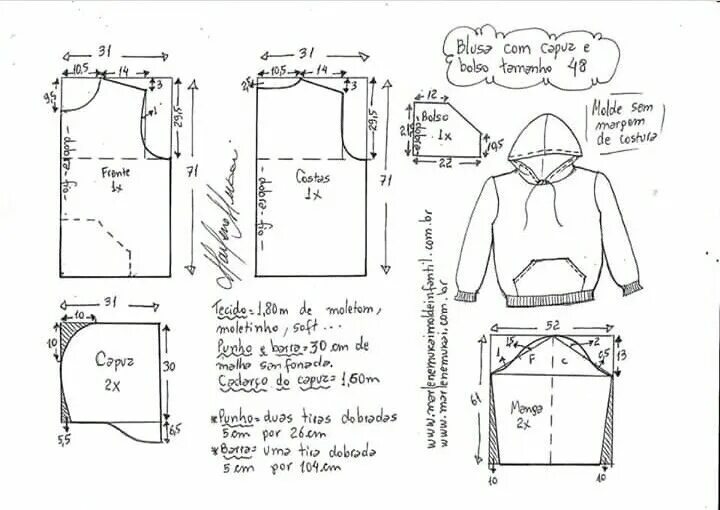 Blusa com capuz e
bolso tamanho 48
Molde sem
margem
de costura
31
10,5
14
9,5
3
1
29,5
71
dobra - fio
Frente
1x
31
10,5
14
2,5
3
29,5
71
dobra - fio
Costas
1x
12
Bolso
1x
dobra
10,5
22
31
10
10
Capuz
2x
30
5,5
6,5
Tecido = 1,80m de moletom,
moletinho, soft...
Punho e barra = 30 cm de
malha sanfonada.
Cadarço do capuz = 1,60m
*Punho = duas tiras dobradas
5 cm por 26 cm
*Barra = uma tira dobrada
5 cm por 104 cm
www.marlenemukaimoldeinfantil.com.br
www.marlenemukai.com.br
52
1
1,5
F
c
2
0,5
13
61
Manga
2x
10
10